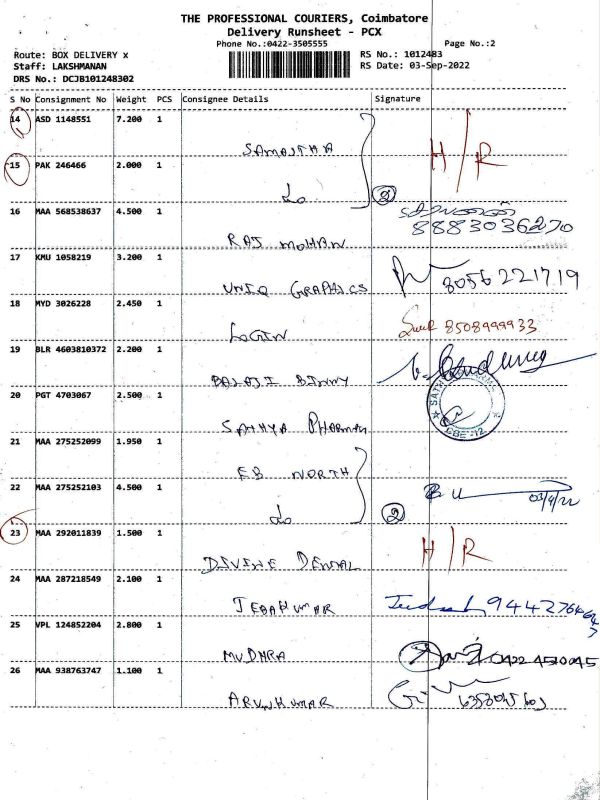 THE PROFESSIONAL COURIERS, Coimbatore
Delivery Runsheet - PCX
Phone No.:0422-3505555
Page No.:2
Route: BOX DELIVERY x
RS No.: 1012483
Staff: LAKSHMANAN
RS Date: 03-Sep-2022
DRS No.: DCJB101248302
S No Consignment No Weight PCS Consignee Details Signature
14 ASD 1148551 7.200 1
SAMASTHA
H/R
15 PAK 246466 2.000 1
Do
2
16 MAA 568538637 4.500 1
8883036270
RAJ MOHAN
17 KMU 1058219 3.200 1
8056221719
UNIQ GRAPHICS
18 MYD 3026228 2.450 1
8508999933
LOGIN
19 BLR 4603810372 2.200 1
BALAJI BINNY
20 PGT 4703067 2.500 1
CBE-12
SATHYA PHARMA
21 MAA 275252099 1.950 1
EB NORTH
22 MAA 275252103 4.500 1
03/9/22
Do
2
23 MAA 292011839 1.500 1
H/R
DIVINE DENTAL
24 MAA 287218549 2.100 1
JEBAKUMAR
25 VPL 124852204 2.800 1
MUDHRA
0422 4510045
26 MAA 938763747 1.100 1
ARUNKUMAR